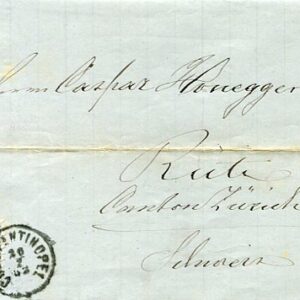 Herrn Caspar Honegger
Rüti
Canton Zürich
Schweiz
CONSTANTINOPEL